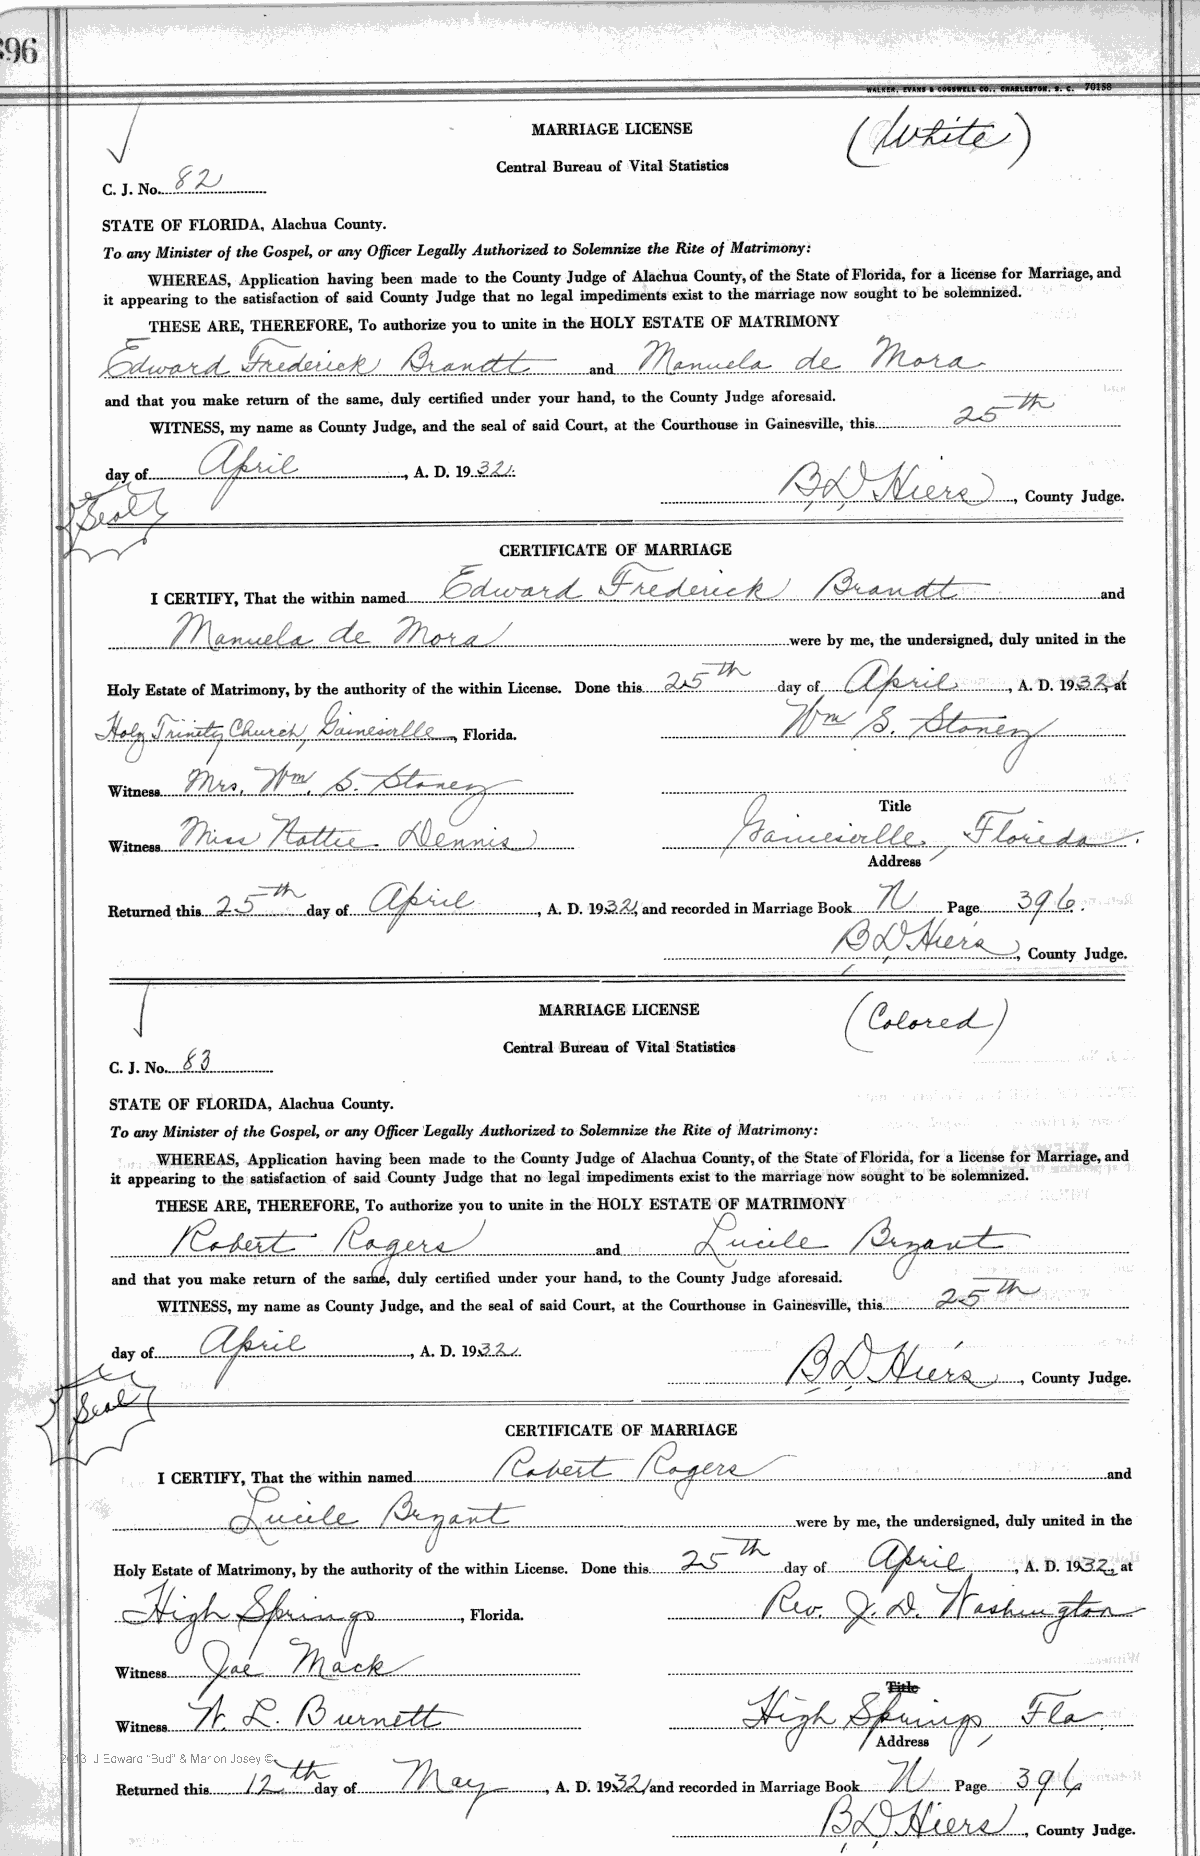 396
WALKER, EVANS & COGSWELL CO., CHARLESTON, S. C. 70158
MARRIAGE LICENSE (White)
Central Bureau of Vital Statistics
C. J. No. 82
STATE OF FLORIDA, Alachua County.
To any Minister of the Gospel, or any Officer Legally Authorized to Solemnize the Rite of Matrimony:
WHEREAS, Application having been made to the County Judge of Alachua County, of the State of Florida, for a license for Marriage, and
it appearing to the satisfaction of said County Judge that no legal impediments exist to the marriage now sought to be solemnized.
THESE ARE, THEREFORE, To authorize you to unite in the HOLY ESTATE OF MATRIMONY
Edward Frederick Brandt and Manuela de Mora
and that you make return of the same, duly certified under your hand, to the County Judge aforesaid.
WITNESS, my name as County Judge, and the seal of said Court, at the Courthouse in Gainesville, this 25th
day of April, A. D. 1932.
B, D, Hiers, County Judge.
Seal
CERTIFICATE OF MARRIAGE
I CERTIFY, That the within named Edward Frederick Brandt and
Manuela de Mora were by me, the undersigned, duly united in the
Holy Estate of Matrimony, by the authority of the within License. Done this 25th day of April, A. D. 1932, at
Holy Trinity Church, Gainesville, Florida. Wm S. Stoney
Witness Mrs. Wm. S. Stoney
Title
Witness Miss Hattie Dennis Gainesville, Florida.
Address
Returned this 25th day of April, A. D. 1932, and recorded in Marriage Book N Page 396.
B, D, Hiers, County Judge.
MARRIAGE LICENSE (Colored)
Central Bureau of Vital Statistics
C. J. No. 83
STATE OF FLORIDA, Alachua County.
To any Minister of the Gospel, or any Officer Legally Authorized to Solemnize the Rite of Matrimony:
WHEREAS, Application having been made to the County Judge of Alachua County, of the State of Florida, for a license for Marriage, and
it appearing to the satisfaction of said County Judge that no legal impediments exist to the marriage now sought to be solemnized.
THESE ARE, THEREFORE, To authorize you to unite in the HOLY ESTATE OF MATRIMONY
Robert Rogers and Lucile Bryant
and that you make return of the same, duly certified under your hand, to the County Judge aforesaid.
WITNESS, my name as County Judge, and the seal of said Court, at the Courthouse in Gainesville, this 25th
day of April, A. D. 1932.
B, D, Hiers, County Judge.
Seal
CERTIFICATE OF MARRIAGE
I CERTIFY, That the within named Robert Rogers and
Lucile Bryant were by me, the undersigned, duly united in the
Holy Estate of Matrimony, by the authority of the within License. Done this 25th day of April, A. D. 1932, at
High Springs, Florida. Rev. J. D. Washington
Witness Joe Mack
Title
Witness W. L. Burnett High Springs, Fla.
Address
2013 J Edward "Bud" & Marion Josey ©
Returned this 12th day of May, A. D. 1932, and recorded in Marriage Book N Page 396
B, D, Hiers, County Judge.